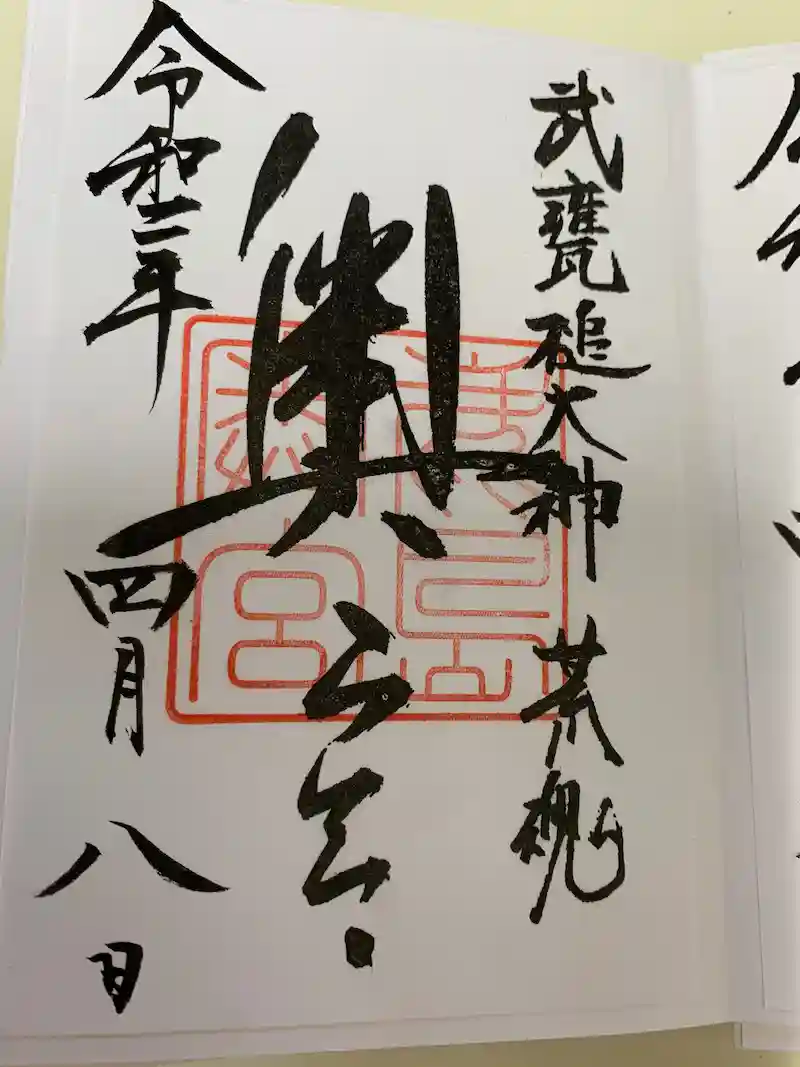 武甕槌大神 荒魂
奥之宮
令和二年四月八日
鹿島
奥宮